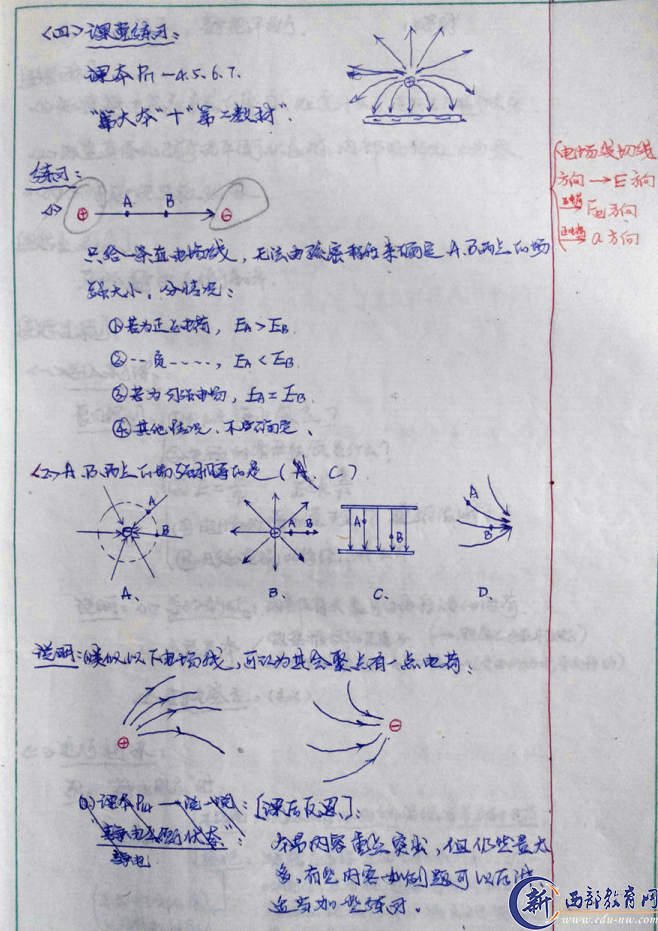 <四>课堂练习:
课本P11—4.5.6.7.
"第大本"十"第二教材".
电场线切线
方向→E方向
正电荷 F电方向
正电荷 a方向
练习:
<1> ⊕ A B ⊖
只给一条直电场线,无法由疏密程度来确定A.B两点的场
强大小,分情况:
①若为正点电荷,EA>EB
②--负----,EA<EB
③若为匀强电场,EA=EB.
④其他情况,不能确定、
<2>A.B两点的场强相等的是(A C)
A B
A B
A B
A B
A、 B、 C、 D、
说明:类似以下电场线,可认为其会聚点有一点电荷:
⊕ ⊖
(2)课本P14—说一说: [课后反思]:
静电平衡状态":
静电
本节内容重点突出,但仍些量太
多,有些内容如例题可以在课
适当加些练习.
新 西部教育网
www.edu-nw.com